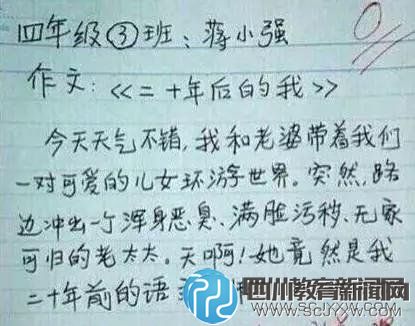 四年级③班：蒋小强
0
作文：<<二十年后的我>>
今天天气不错，我和老婆带着我们
一对可爱的儿女环游世界。突然，路
边冲出一个浑身恶臭、满脸污秽、无家
可归的老太太。天啊！她竟然是我
二十年前的语
四川教育新闻网
WWW.SCJYXW.COM